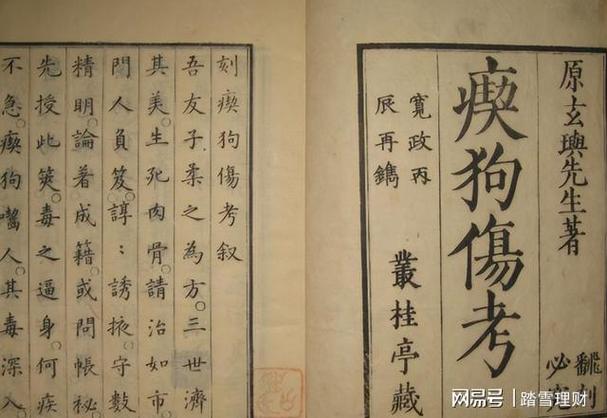 原玄璵先生著
翻刻
必究
瘈狗傷考
寬政丙
辰再鐫
叢桂亭藏
刻瘈狗傷考叙
吾友子柔之為方。三世濟
其美。生死肉骨。請治如市。
門人負笈。諄〻誘掖。守數
精明。論著成籍。或問帳祕。
先授此筴。毒之逼身。何疾
不急。瘈狗囓人。其毒深入
网易号 | 踏雪理财